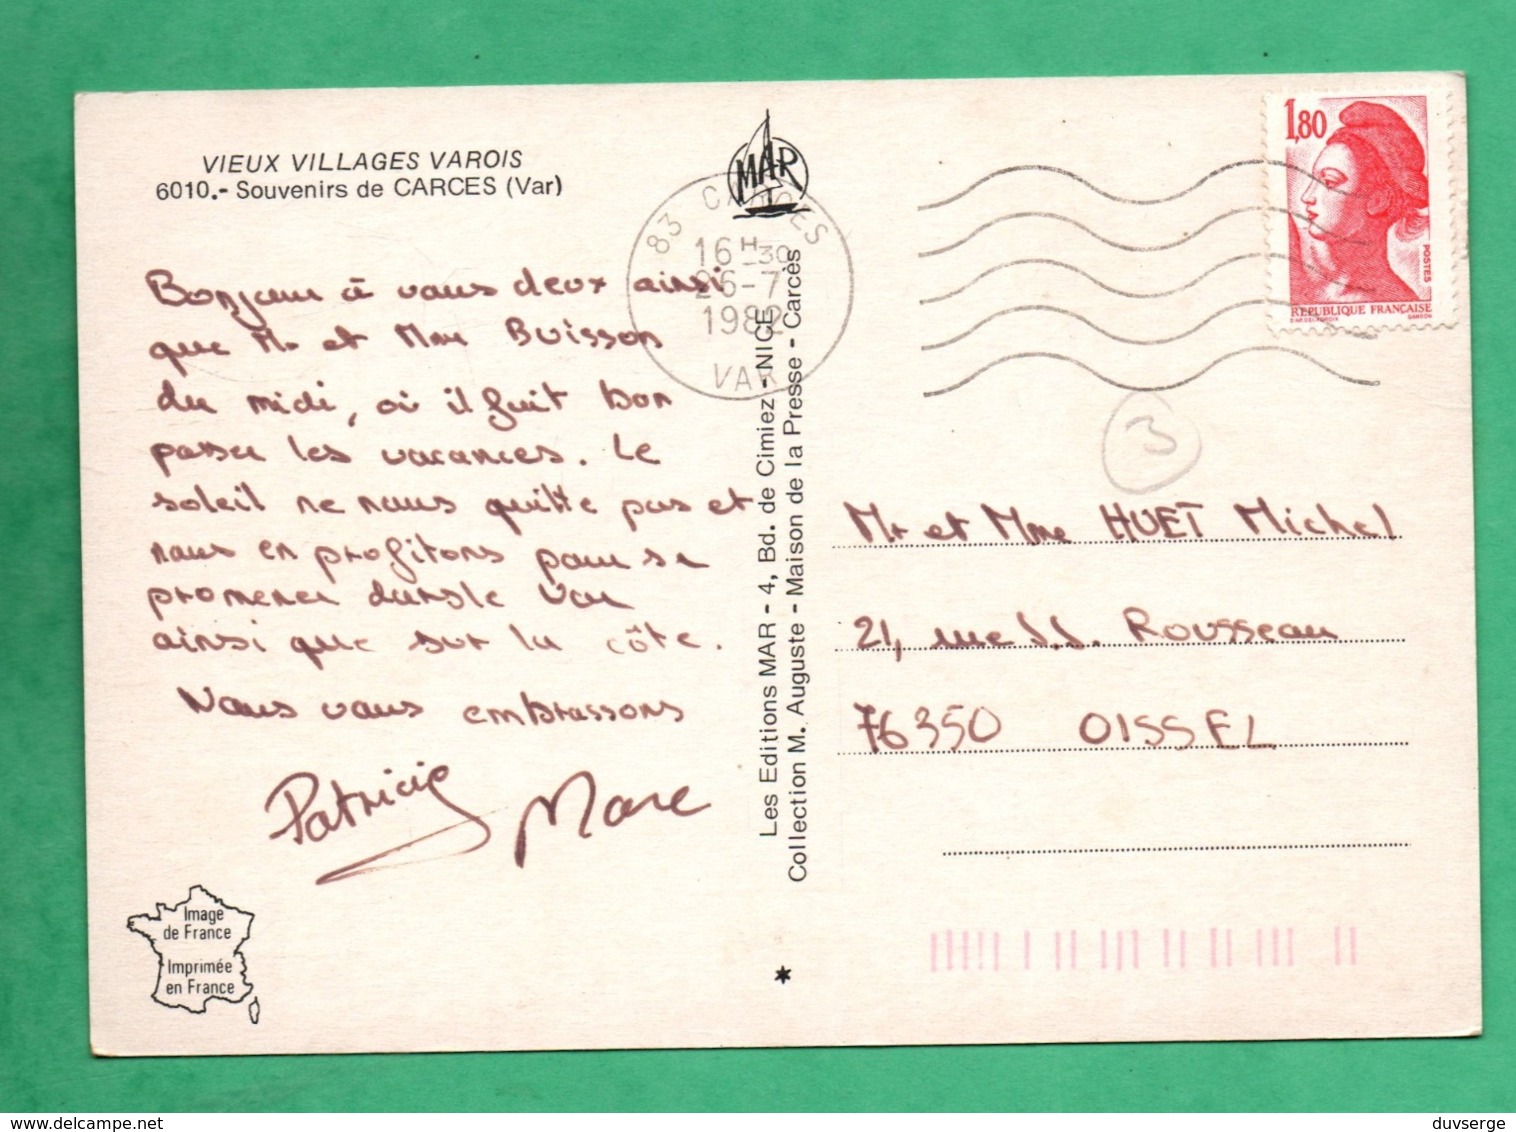 VIEUX VILLAGES VAROIS
6010.- Souvenirs de CARCES (Var)
MAR
83 CARCES
16H30
26-7
1982
VAR
1,80
POSTES
REPUBLIQUE FRANÇAISE
Bonjour à vous deux ainsi
que Mr et Mme BUISSON
du midi, où il fait bon
passer les vacances. Le
soleil ne nous quitte pas et
nous en profitons pour se
promener dans le Var
ainsi que sur la côte.
Nous vous embrassons
Patricia Marc
Les Editions MAR - 4, Bd. de Cimiez - NICE
Collection M. Auguste - Maison de la Presse - Carcès
3
Mr et Mme HUET Michel
21, rue J.J. Rousseau
76350 OISSEL
Image
de France
Imprimée
en France
delcampe.net
duvserge